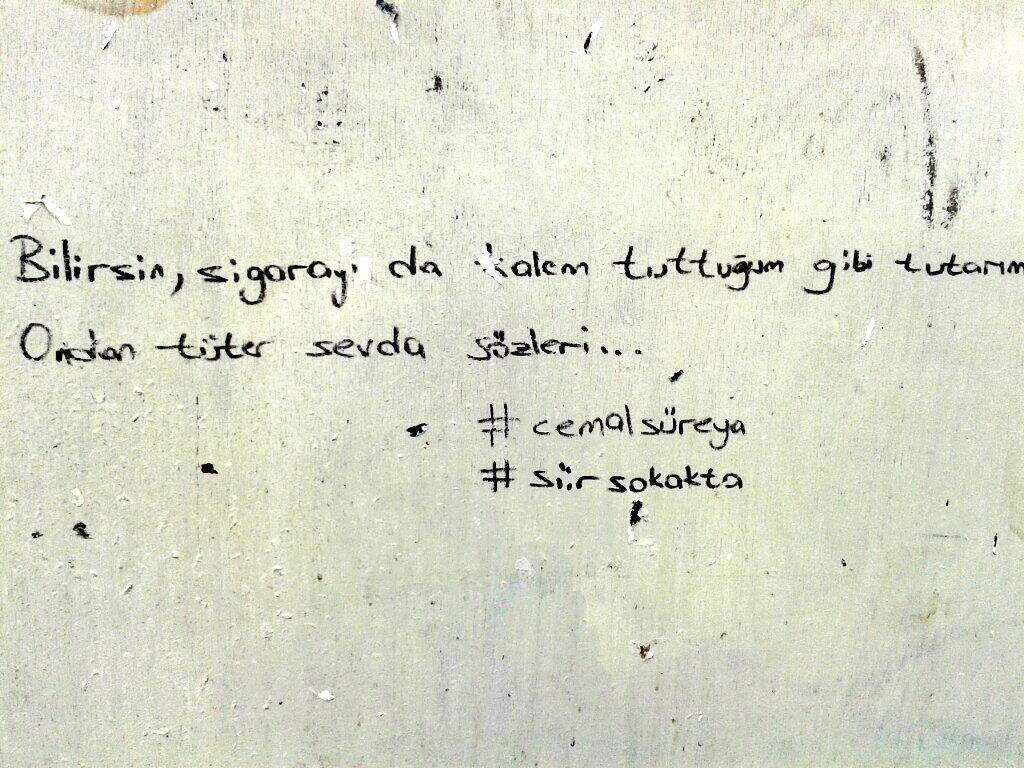 Bilirsin, sigarayı da kalem tuttuğum gibi tutarım
Ondan tüter sevda sözleri...
# cemalsüreya
# siirsokakta